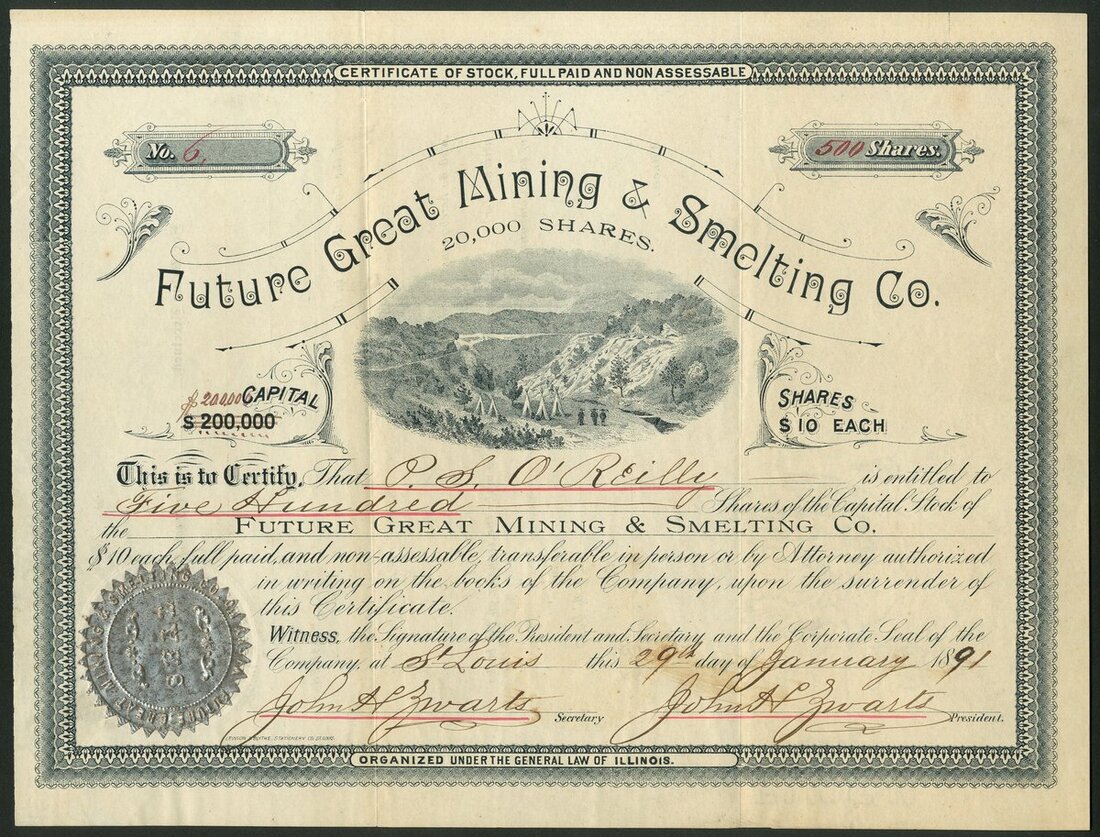 CERTIFICATE OF STOCK, FULL PAID AND NON ASSESSABLE
No. 6.
500 Shares.
Future Great Mining & Smelting Co.
20,000 SHARES.
$20000 CAPITAL
$200,000
SHARES
$10 EACH
This is to Certify, That P. S. O'Reilly is entitled to
Five Hundred Shares of the Capital Stock of
the FUTURE GREAT MINING & SMELTING CO.
$10 each, full paid, and non-assessable, transferable in person or by Attorney authorized
in writing on the books of the Company, upon the surrender of
this Certificate.
Witness, the Signature of the President and Secretary, and the Corporate Seal of the
Company, at St Louis this 29th day of January 1891
John H Zwarts Secretary John H Zwarts President.
STATIONERY CO. ST. LOUIS.
SEAL
ORGANIZED UNDER THE GENERAL LAW OF ILLINOIS.